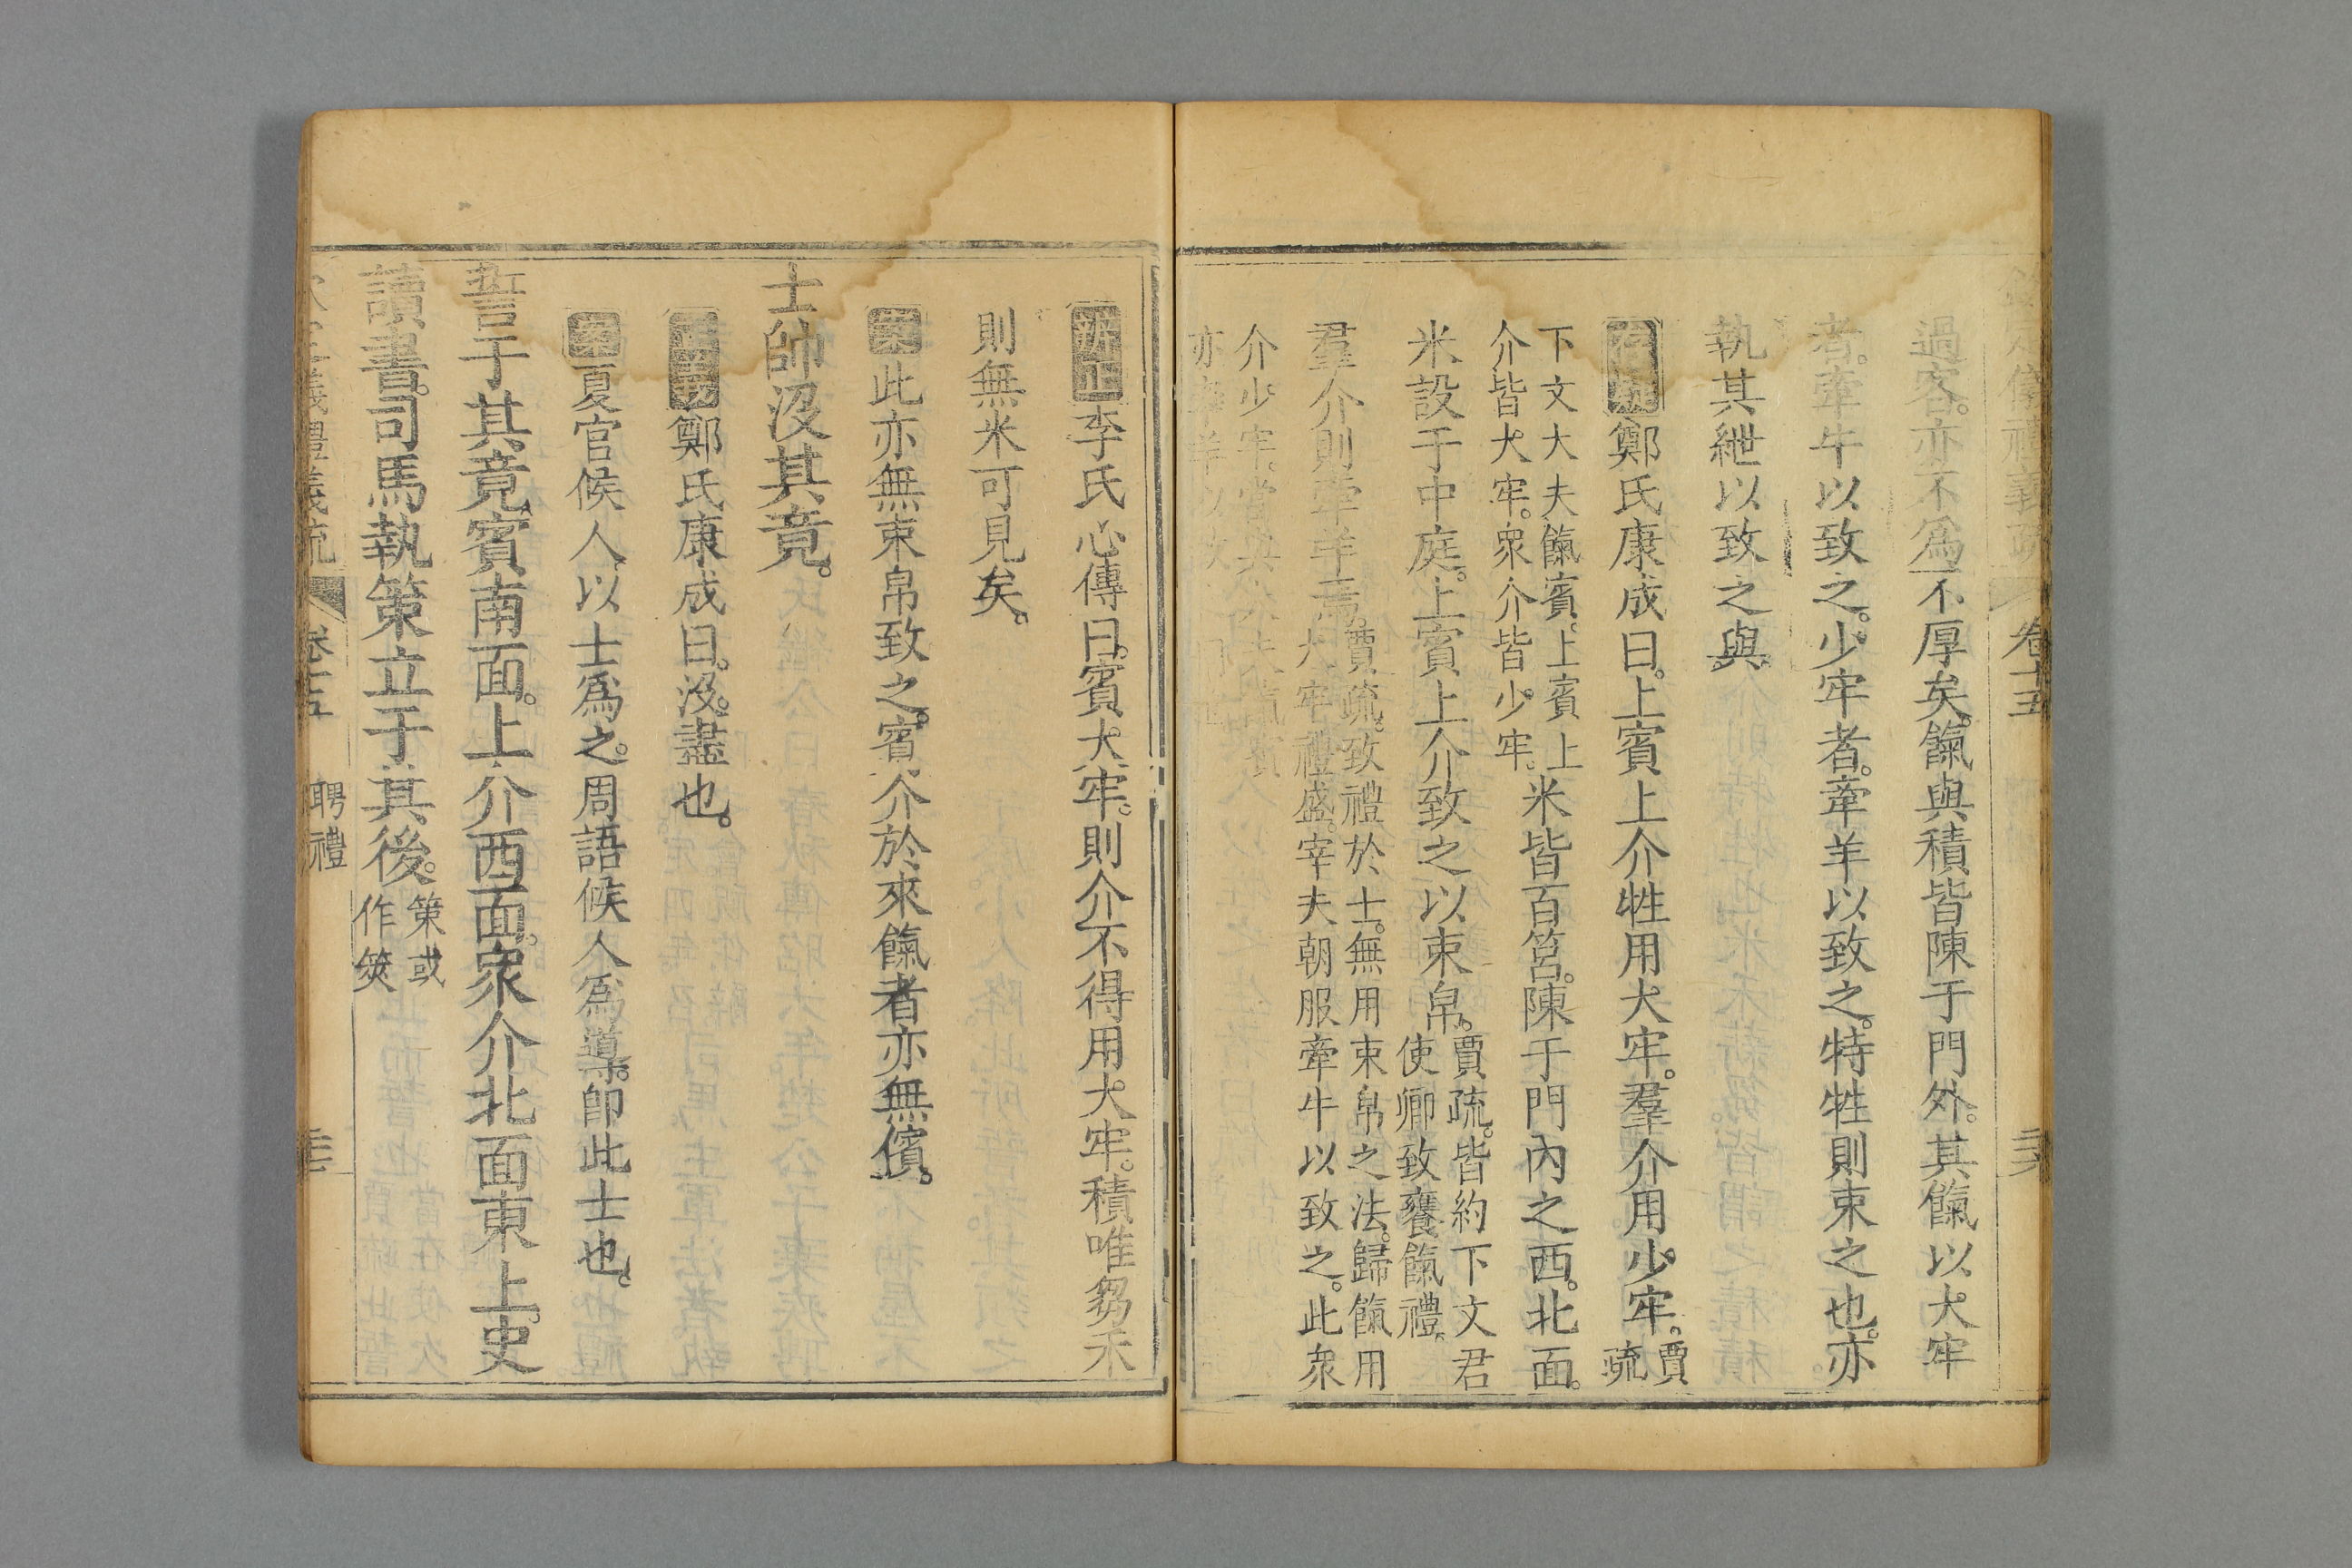 欽定儀禮義疏 卷十五
過客亦不爲不厚矣餼與積皆陳于門外其餼以大牢
者牽牛以致之少牢者牽羊以致之特牲則束之也亦
執其紲以致之與
存疑鄭氏康成曰上賓上介牲用大牢羣介用少牢賈疏
下文大夫餼賓上賓上介皆大牢衆介皆少牢米皆百筥陳于門內之西北面
米設于中庭上賓上介致之以束帛賈疏皆約下文君使卿致饔餼禮
羣介則牽羊焉賈疏致禮於士無用束帛之法歸餼用大牢禮盛宰夫朝服牽牛以致之此衆
介少牢當與大夫餼賓
亦牽羊以致
辨正李氏心傳曰賓大牢則介不得用大牢積唯芻禾
則無米可見矣
案此亦無束帛致之賓介於來餼者亦無儐
士帥沒其竟
正義鄭氏康成曰沒盡也
案夏官候人以士爲之周語候人爲導卽此士也
誓于其竟賓南面上介西面衆介北面東上史
讀書司馬執策立于其後策或作筴
欽定儀禮義疏 卷十五 聘禮